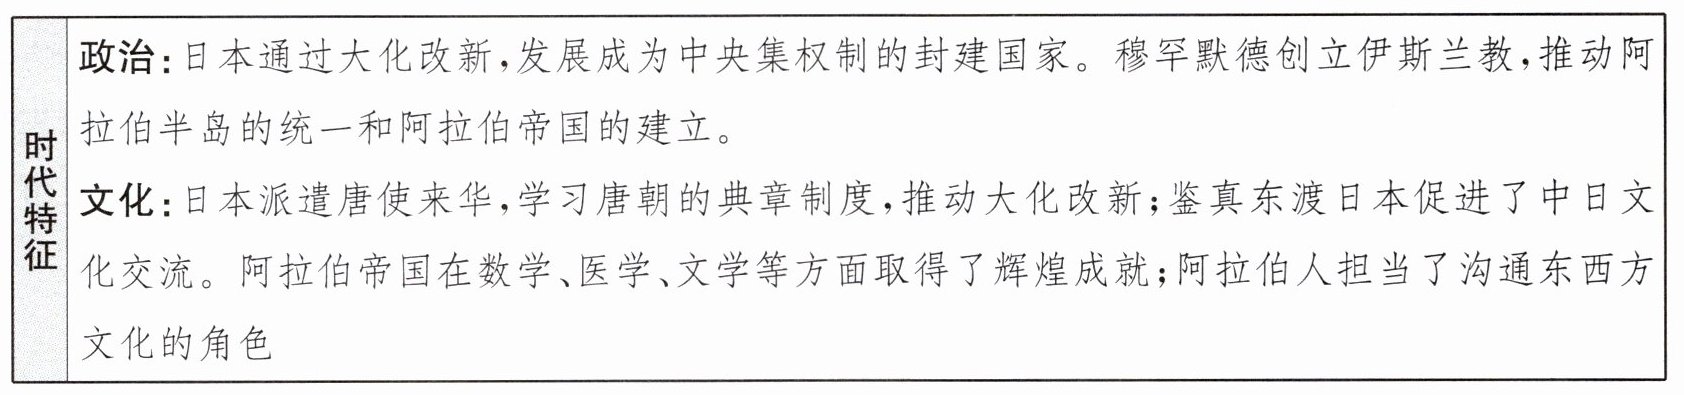 时代特征
政治:日本通过大化改新,发展成为中央集权制的封建国家。穆罕默德创立伊斯兰教,推动阿
拉伯半岛的统一和阿拉伯帝国的建立。
文化:日本派遣唐使来华,学习唐朝的典章制度,推动大化改新;鉴真东渡日本促进了中日文
化交流。阿拉伯帝国在数学、医学、文学等方面取得了辉煌成就;阿拉伯人担当了沟通东西方
文化的角色